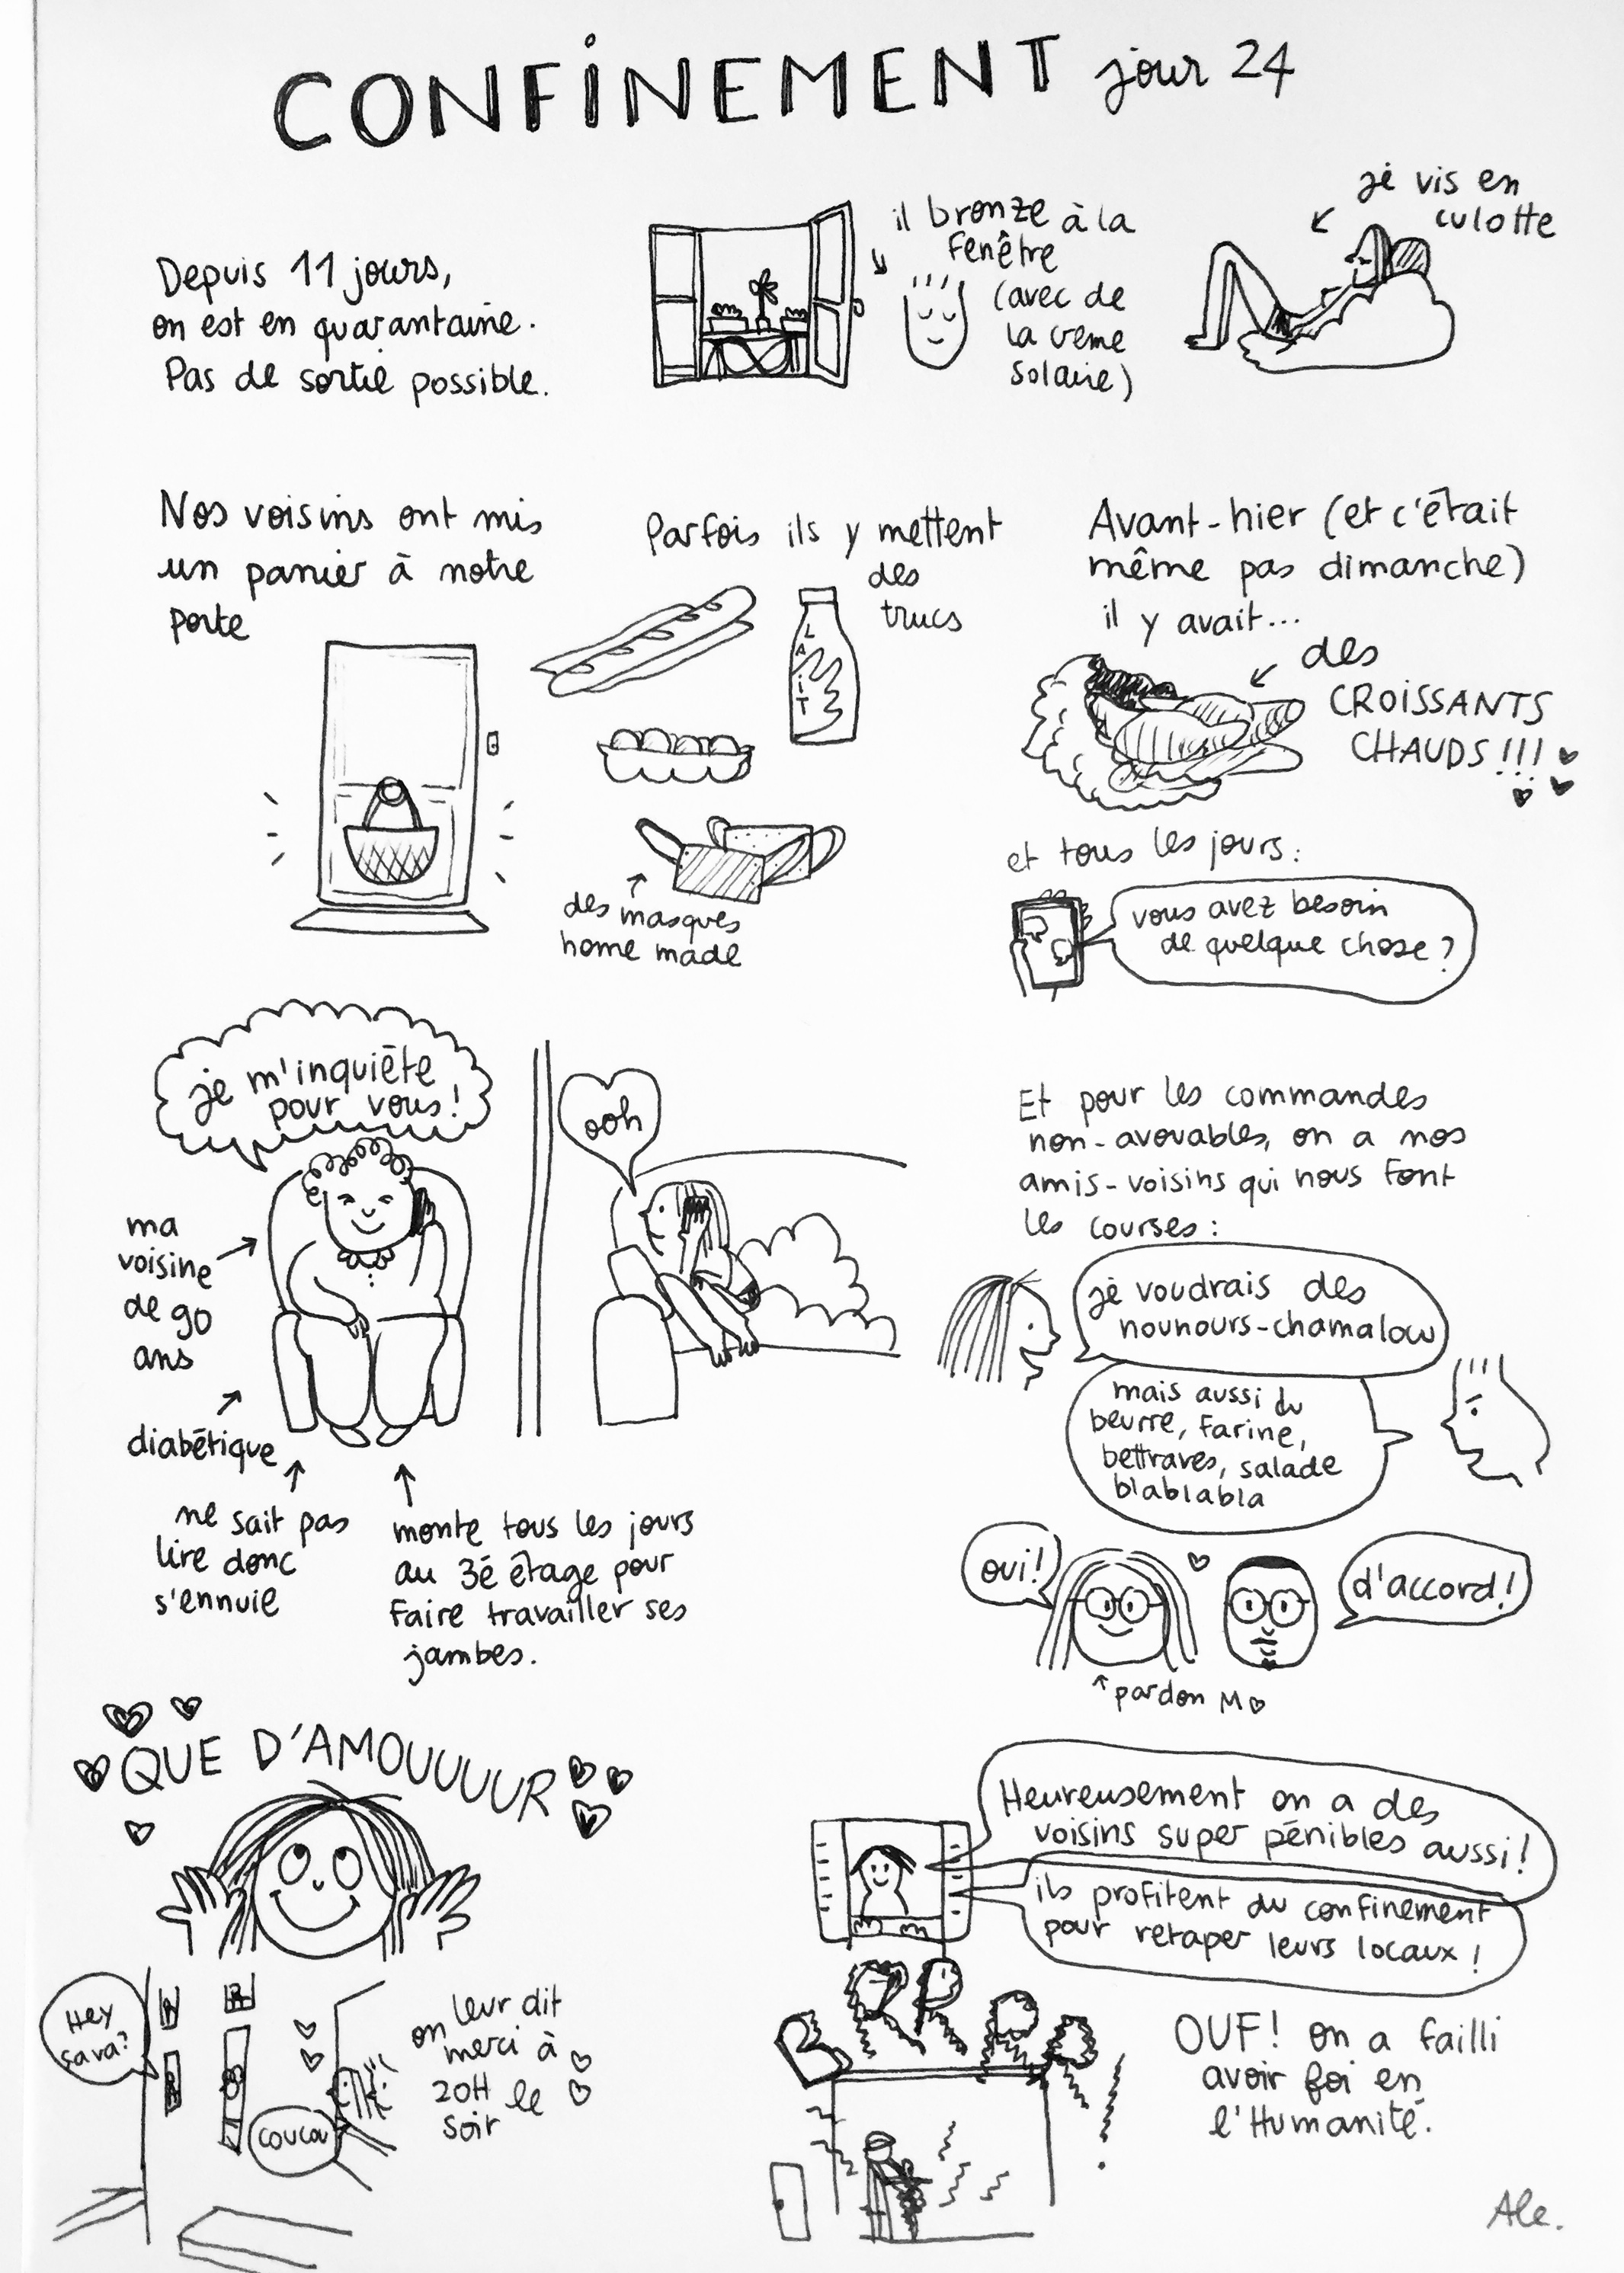 CONFINEMENT jour 24
Depuis 11 jours,
on est en quarantaine.
Pas de sortie possible.
il bronze à la
fenêtre
(avec de
la crème
solaire)
je vis en
culotte
Nos voisins ont mis
un panier à notre
porte
Parfois ils y mettent
des
trucs
LAIT
des masques
home made
Avant-hier (et c'était
même pas dimanche)
il y avait...
des
CROISSANTS
CHAUDS!!!
et tous les jours:
vous avez besoin
de quelque chose?
je m'inquiète
pour vous!
ooh
ma
voisine
de 90
ans
diabétique
ne sait pas
lire donc
s'ennuie
monte tous les jours
au 3é étage pour
faire travailler ses
jambes.
Et pour les commandes
non-avouables, on a nos
amis-voisins qui nous font
les courses:
je voudrais des
nounours-chamalow
mais aussi du
beurre, farine,
bettraves, salade
blablabla
oui!
d'accord!
pardon M
QUE D'AMOUUUUUR
Hey
sava?
coucou
on leur dit
merci à
20H le
soir
Heureusement on a des
voisins super pénibles aussi!
ils profitent du confinement
pour retaper leurs locaux!
OUF! on a failli
avoir foi en
l'Humanité.
Ale.